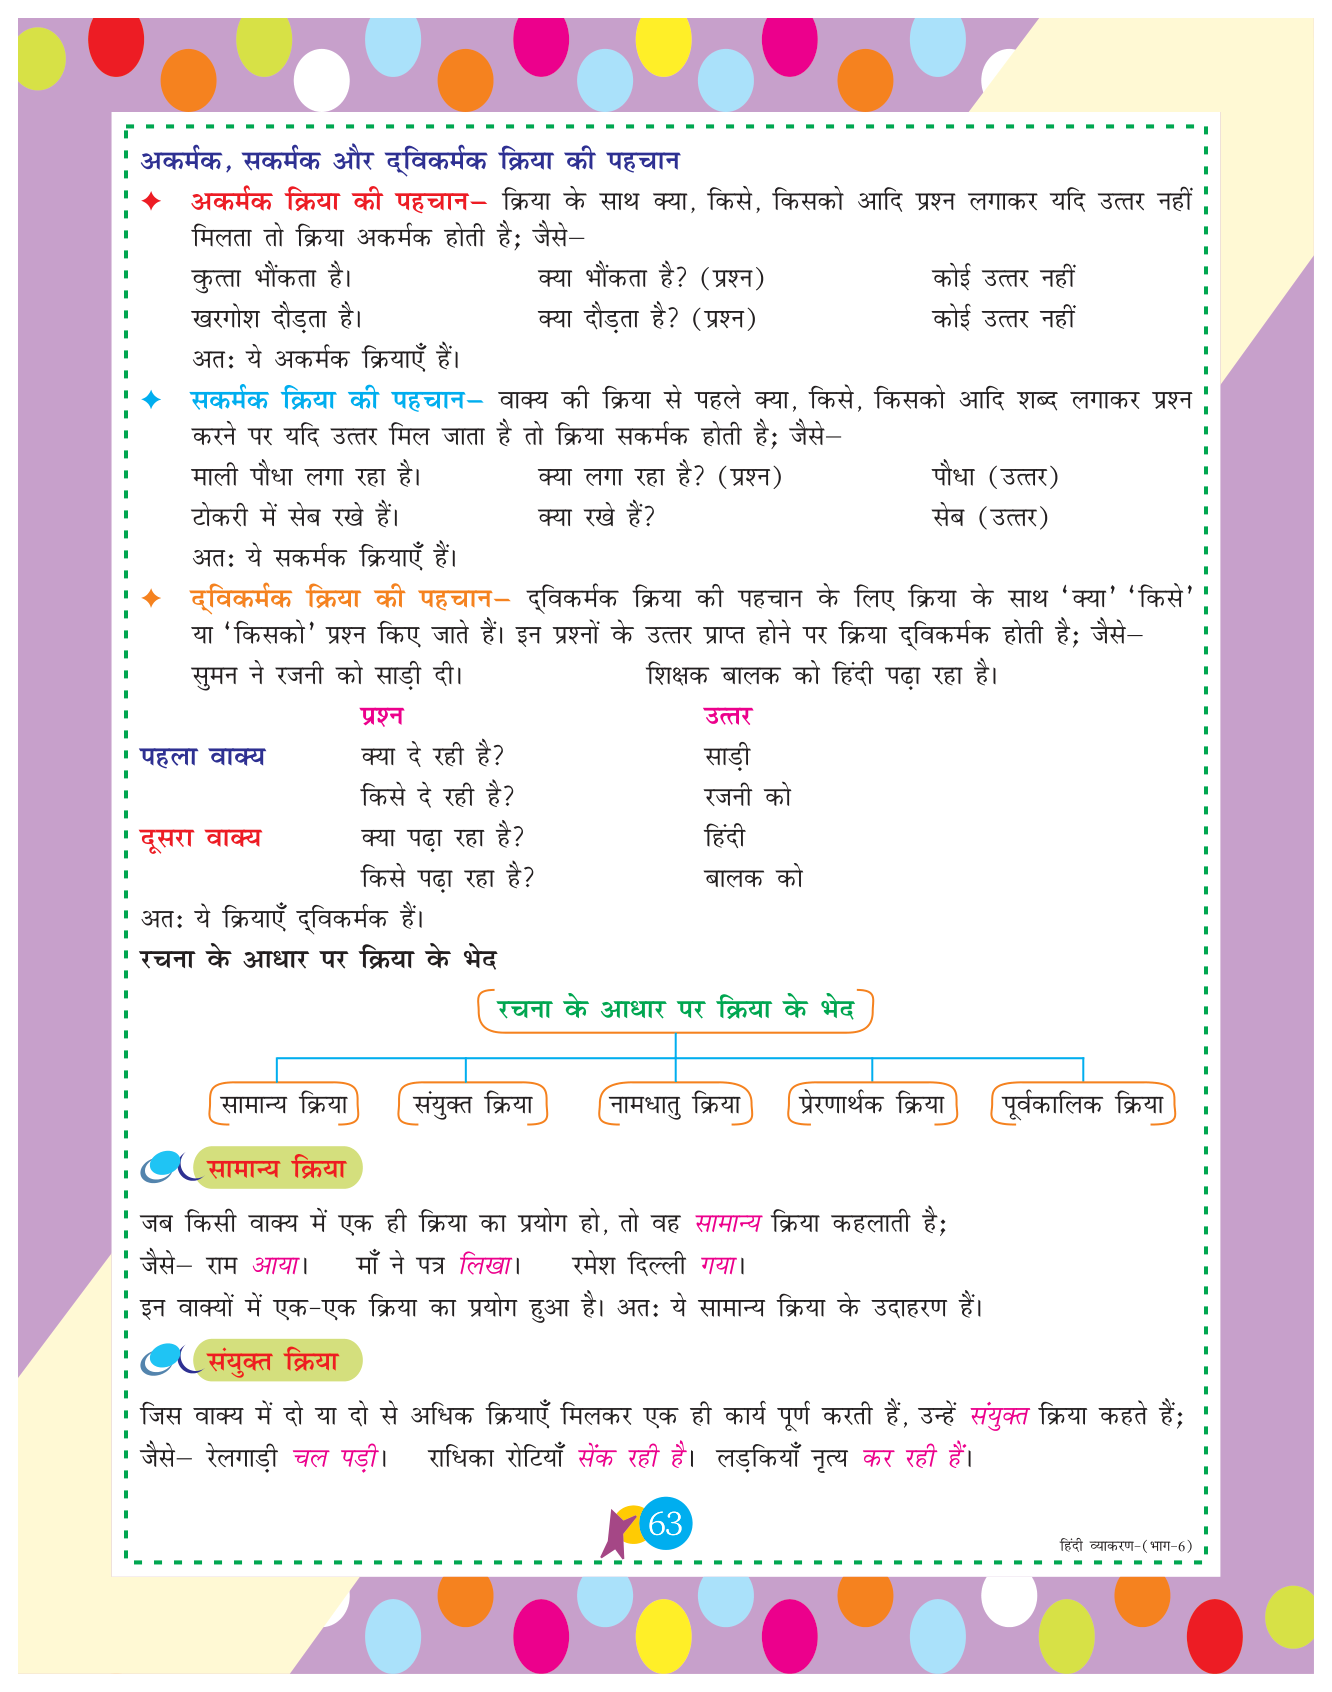 अकर्मक, सकर्मक और द्‌विकर्मक क्रिया की पहचान
अकर्मक क्रिया की पहचान– क्रिया के साथ क्या, किसे, किसको आदि प्रश्न लगाकर यदि उत्तर नहीं
मिलता तो क्रिया अकर्मक होती है; जैसे–
कुत्ता भौंकता है। क्या भौंकता है? (प्रश्न) कोई उत्तर नहीं
खरगोश दौड़ता है। क्या दौड़ता है? (प्रश्न) कोई उत्तर नहीं
अतः ये अकर्मक क्रियाएँ हैं।
सकर्मक क्रिया की पहचान– वाक्य की क्रिया से पहले क्या, किसे, किसको आदि शब्द लगाकर प्रश्न
करने पर यदि उत्तर मिल जाता है तो क्रिया सकर्मक होती है; जैसे–
माली पौधा लगा रहा है। क्या लगा रहा है? (प्रश्न) पौधा (उत्तर)
टोकरी में सेब रखे हैं। क्या रखे हैं? सेब (उत्तर)
अतः ये सकर्मक क्रियाएँ हैं।
द्‌विकर्मक क्रिया की पहचान– द्‌विकर्मक क्रिया की पहचान के लिए क्रिया के साथ ‘क्या’ ‘किसे’
या ‘किसको’ प्रश्न किए जाते हैं। इन प्रश्नों के उत्तर प्राप्त होने पर क्रिया द्‌विकर्मक होती है; जैसे–
सुमन ने रजनी को साड़ी दी। शिक्षक बालक को हिंदी पढ़ा रहा है।
प्रश्न उत्तर
पहला वाक्य क्या दे रही है? साड़ी
किसे दे रही है? रजनी को
दूसरा वाक्य क्या पढ़ा रहा है? हिंदी
किसे पढ़ा रहा है? बालक को
अतः ये क्रियाएँ द्‌विकर्मक हैं।
रचना के आधार पर क्रिया के भेद
रचना के आधार पर क्रिया के भेद
सामान्य क्रिया संयुक्त क्रिया नामधातु क्रिया प्रेरणार्थक क्रिया पूर्वकालिक क्रिया
सामान्य क्रिया
जब किसी वाक्य में एक ही क्रिया का प्रयोग हो, तो वह सामान्य क्रिया कहलाती है;
जैसे– राम आया। माँ ने पत्र लिखा। रमेश दिल्ली गया।
इन वाक्यों में एक-एक क्रिया का प्रयोग हुआ है। अतः ये सामान्य क्रिया के उदाहरण हैं।
संयुक्त क्रिया
जिस वाक्य में दो या दो से अधिक क्रियाएँ मिलकर एक ही कार्य पूर्ण करती हैं, उन्हें संयुक्त क्रिया कहते हैं;
जैसे– रेलगाड़ी चल पड़ी। राधिका रोटियाँ सेंक रही है। लड़कियाँ नृत्य कर रही हैं।
63
हिंदी व्याकरण-(भाग-6)